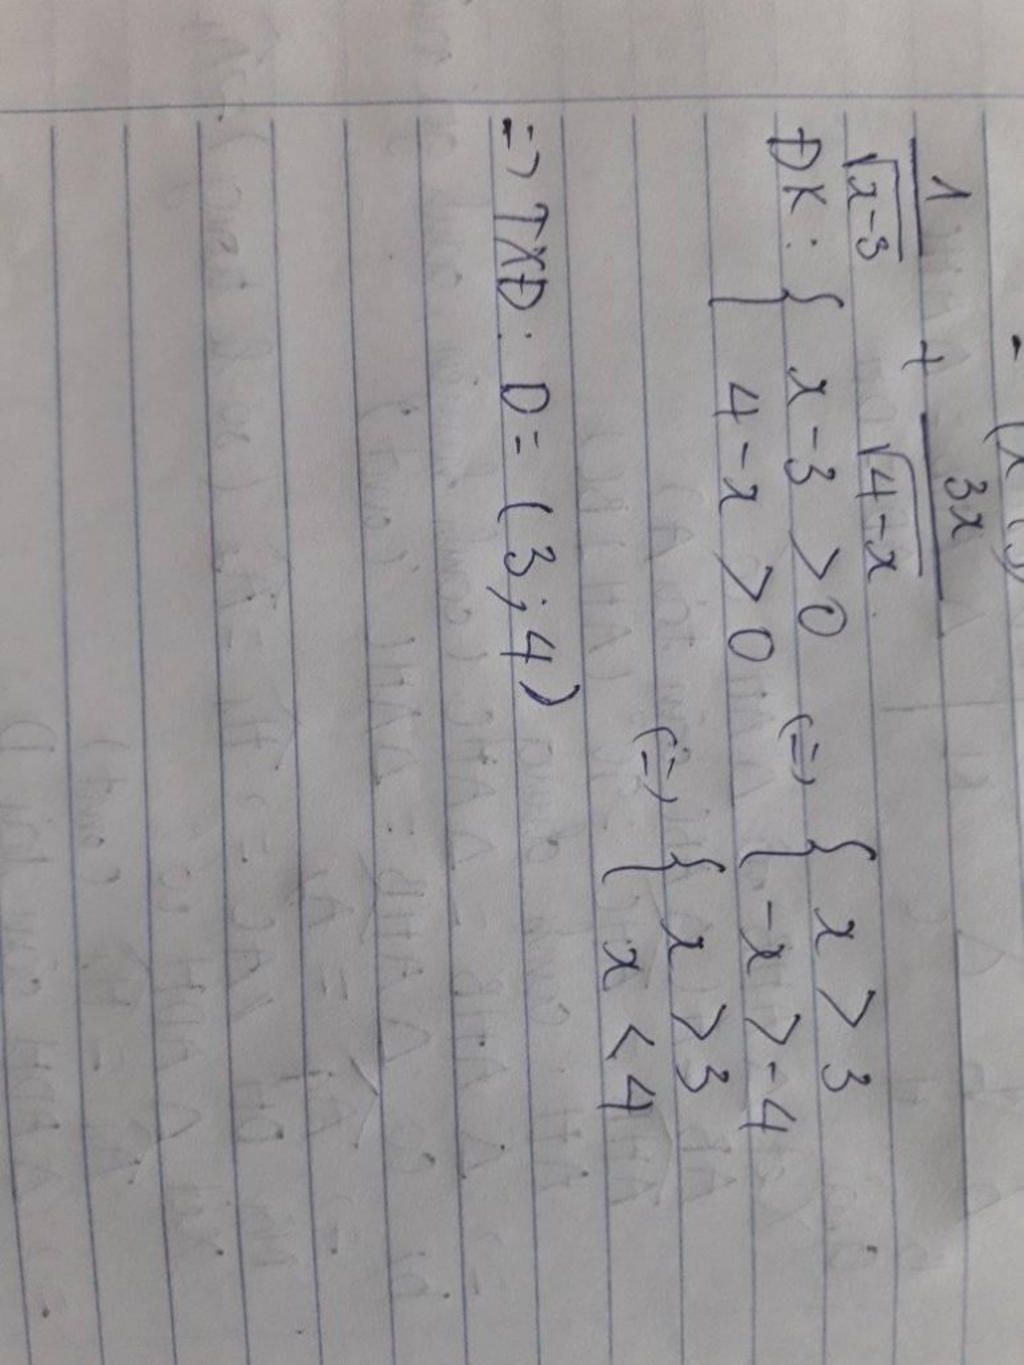 1/√(x-3) + 3x/√(4-x)
ĐK: { x-3 > 0 (=) { x > 3
4-x > 0 { -x > -4
(=) { x > 3
x < 4
=> TXĐ: D = (3;4)